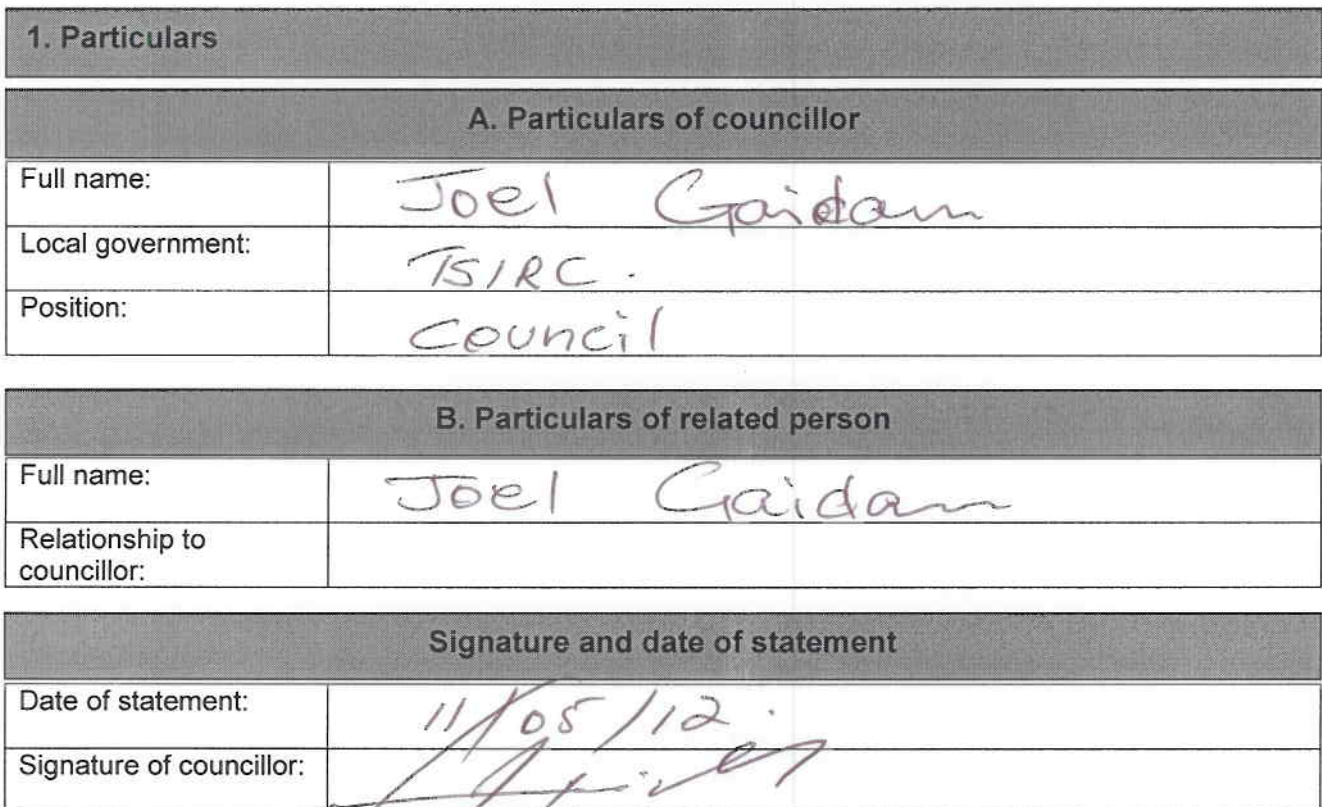 1. Particulars
A. Particulars of councillor
Full name: Joel Gaidam
Local government: TSIRC.
Position: Council
B. Particulars of related person
Full name: Joel Gaidam
Relationship to
councillor:
Signature and date of statement
Date of statement: 11/05/12.
Signature of councillor: